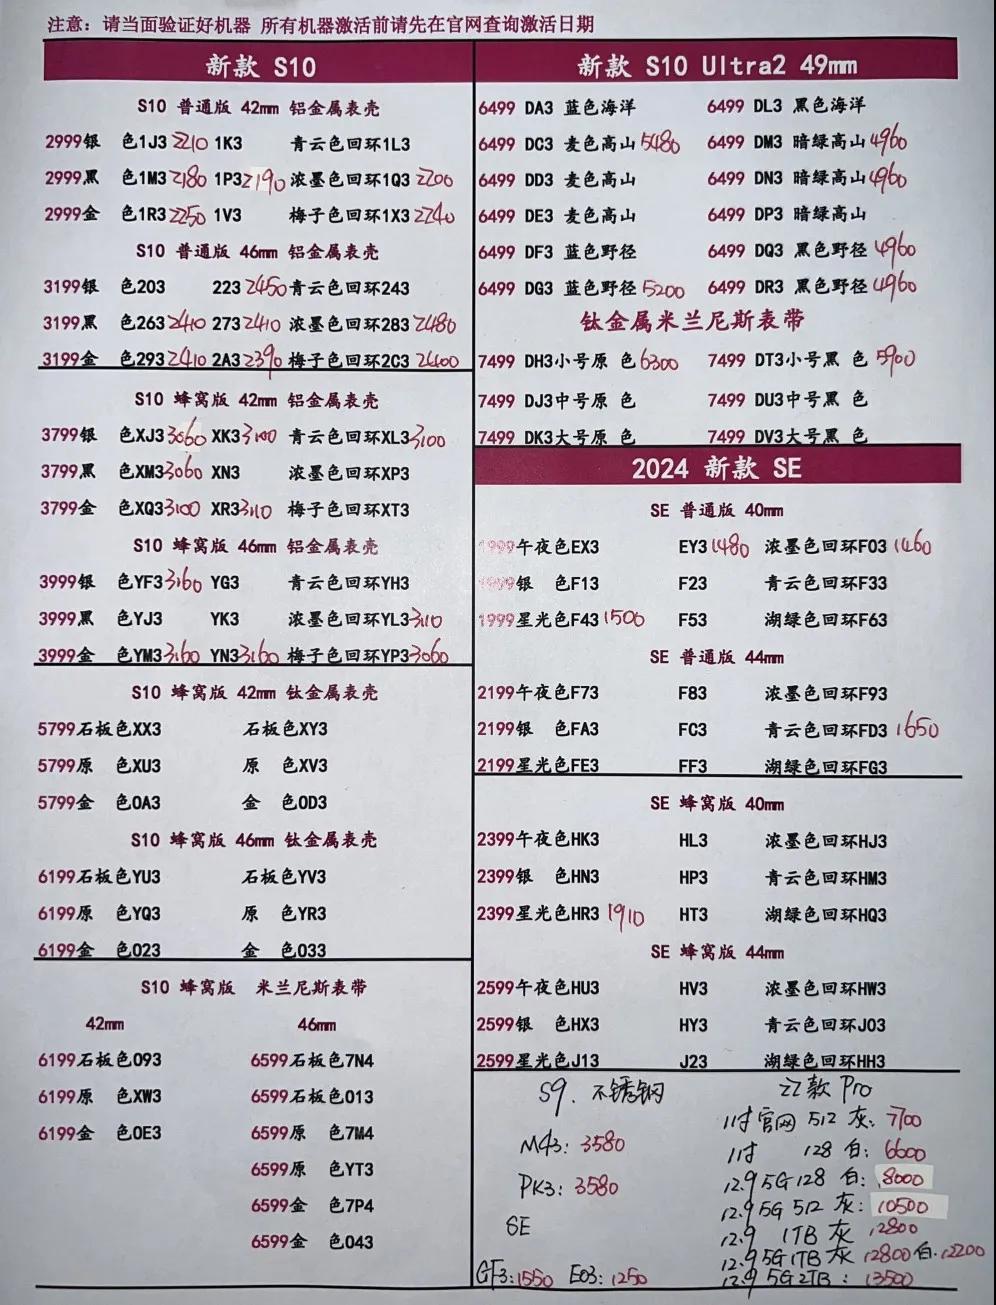 注意：请当面验证好机器 所有机器激活前请先在官网查询激活日期
新款 S10
S10 普通版 42mm 铝金属表壳
2999银 色1J3 2210 1K3 青云色回环1L3
2999黑 色1M3 2180 1P3 2190 浓墨色回环1Q3 2200
2999金 色1R3 2250 1V3 梅子色回环1X3 2240
S10 普通版 46mm 铝金属表壳
3199银 色203 223 2450 青云色回环243
3199黑 色263 2410 273 2410 浓墨色回环283 2480
3199金 色293 2410 2A3 2390 梅子色回环2C3 2400
S10 蜂窝版 42mm 铝金属表壳
3799银 色XJ3 3060 XK3 3100 青云色回环XL3 3100
3799黑 色XM3 3060 XN3 浓墨色回环XP3
3799金 色XQ3 3100 XR3 3110 梅子色回环XT3
S10 蜂窝版 46mm 铝金属表壳
3999银 色YF3 3160 YG3 青云色回环YH3
3999黑 色YJ3 YK3 浓墨色回环YL3 3110
3999金 色YM3 3160 YN3 3160 梅子色回环YP3 3060
S10 蜂窝版 42mm 钛金属表壳
5799石板色XX3 石板色XY3
5799原 色XU3 原 色XV3
5799金 色0A3 金 色0D3
S10 蜂窝版 46mm 钛金属表壳
6199石板色YU3 石板色YV3
6199原 色YQ3 原 色YR3
6199金 色023 金 色033
S10 蜂窝版 米兰尼斯表带
42mm 46mm
6199石板色093 6599石板色7N4
6199原 色XW3 6599石板色013
6199金 色0E3 6599原 色7M4
6599原 色YT3
6599金 色7P4
6599金 色043
新款 S10 Ultra2 49mm
6499 DA3 蓝色海洋 6499 DL3 黑色海洋
6499 DC3 麦色高山 5480 6499 DM3 暗绿高山 4960
6499 DD3 麦色高山 6499 DN3 暗绿高山 4960
6499 DE3 麦色高山 6499 DP3 暗绿高山
6499 DF3 蓝色野径 6499 DQ3 黑色野径 4960
6499 DG3 蓝色野径 5200 6499 DR3 黑色野径 4960
钛金属米兰尼斯表带
7499 DH3小号原 色 6300 7499 DT3小号黑 色 5900
7499 DJ3中号原 色 7499 DU3中号黑 色
7499 DK3大号原 色 7499 DV3大号黑 色
2024 新款 SE
SE 普通版 40mm
1999午夜色EX3 EY3 1480 浓墨色回环F03 1460
1999银 色F13 F23 青云色回环F33
1999星光色F43 1500 F53 湖绿色回环F63
SE 普通版 44mm
2199午夜色F73 F83 浓墨色回环F93
2199银 色FA3 FC3 青云色回环FD3 1650
2199星光色FE3 FF3 湖绿色回环FG3
SE 蜂窝版 40mm
2399午夜色HK3 HL3 浓墨色回环HJ3
2399银 色HN3 HP3 青云色回环HM3
2399星光色HR3 1910 HT3 湖绿色回环HQ3
SE 蜂窝版 44mm
2599午夜色HU3 HV3 浓墨色回环HW3
2599银 色HX3 HY3 青云色回环J03
2599星光色J13 J23 湖绿色回环HH3
S9. 不锈钢
M43: 3580
PK3: 3580
SE
GF3: 1550 E03: 1250
22款 Pro
11寸官网 512 灰: 7700
11寸 128 白: 6600
12.9 5G 128 白: 8000
12.9 5G 512 灰: 10500
12.9 1TB 灰 12800
12.9 5G 1TB 灰 12800 白.12200
12.9 5G 2TB: 13500